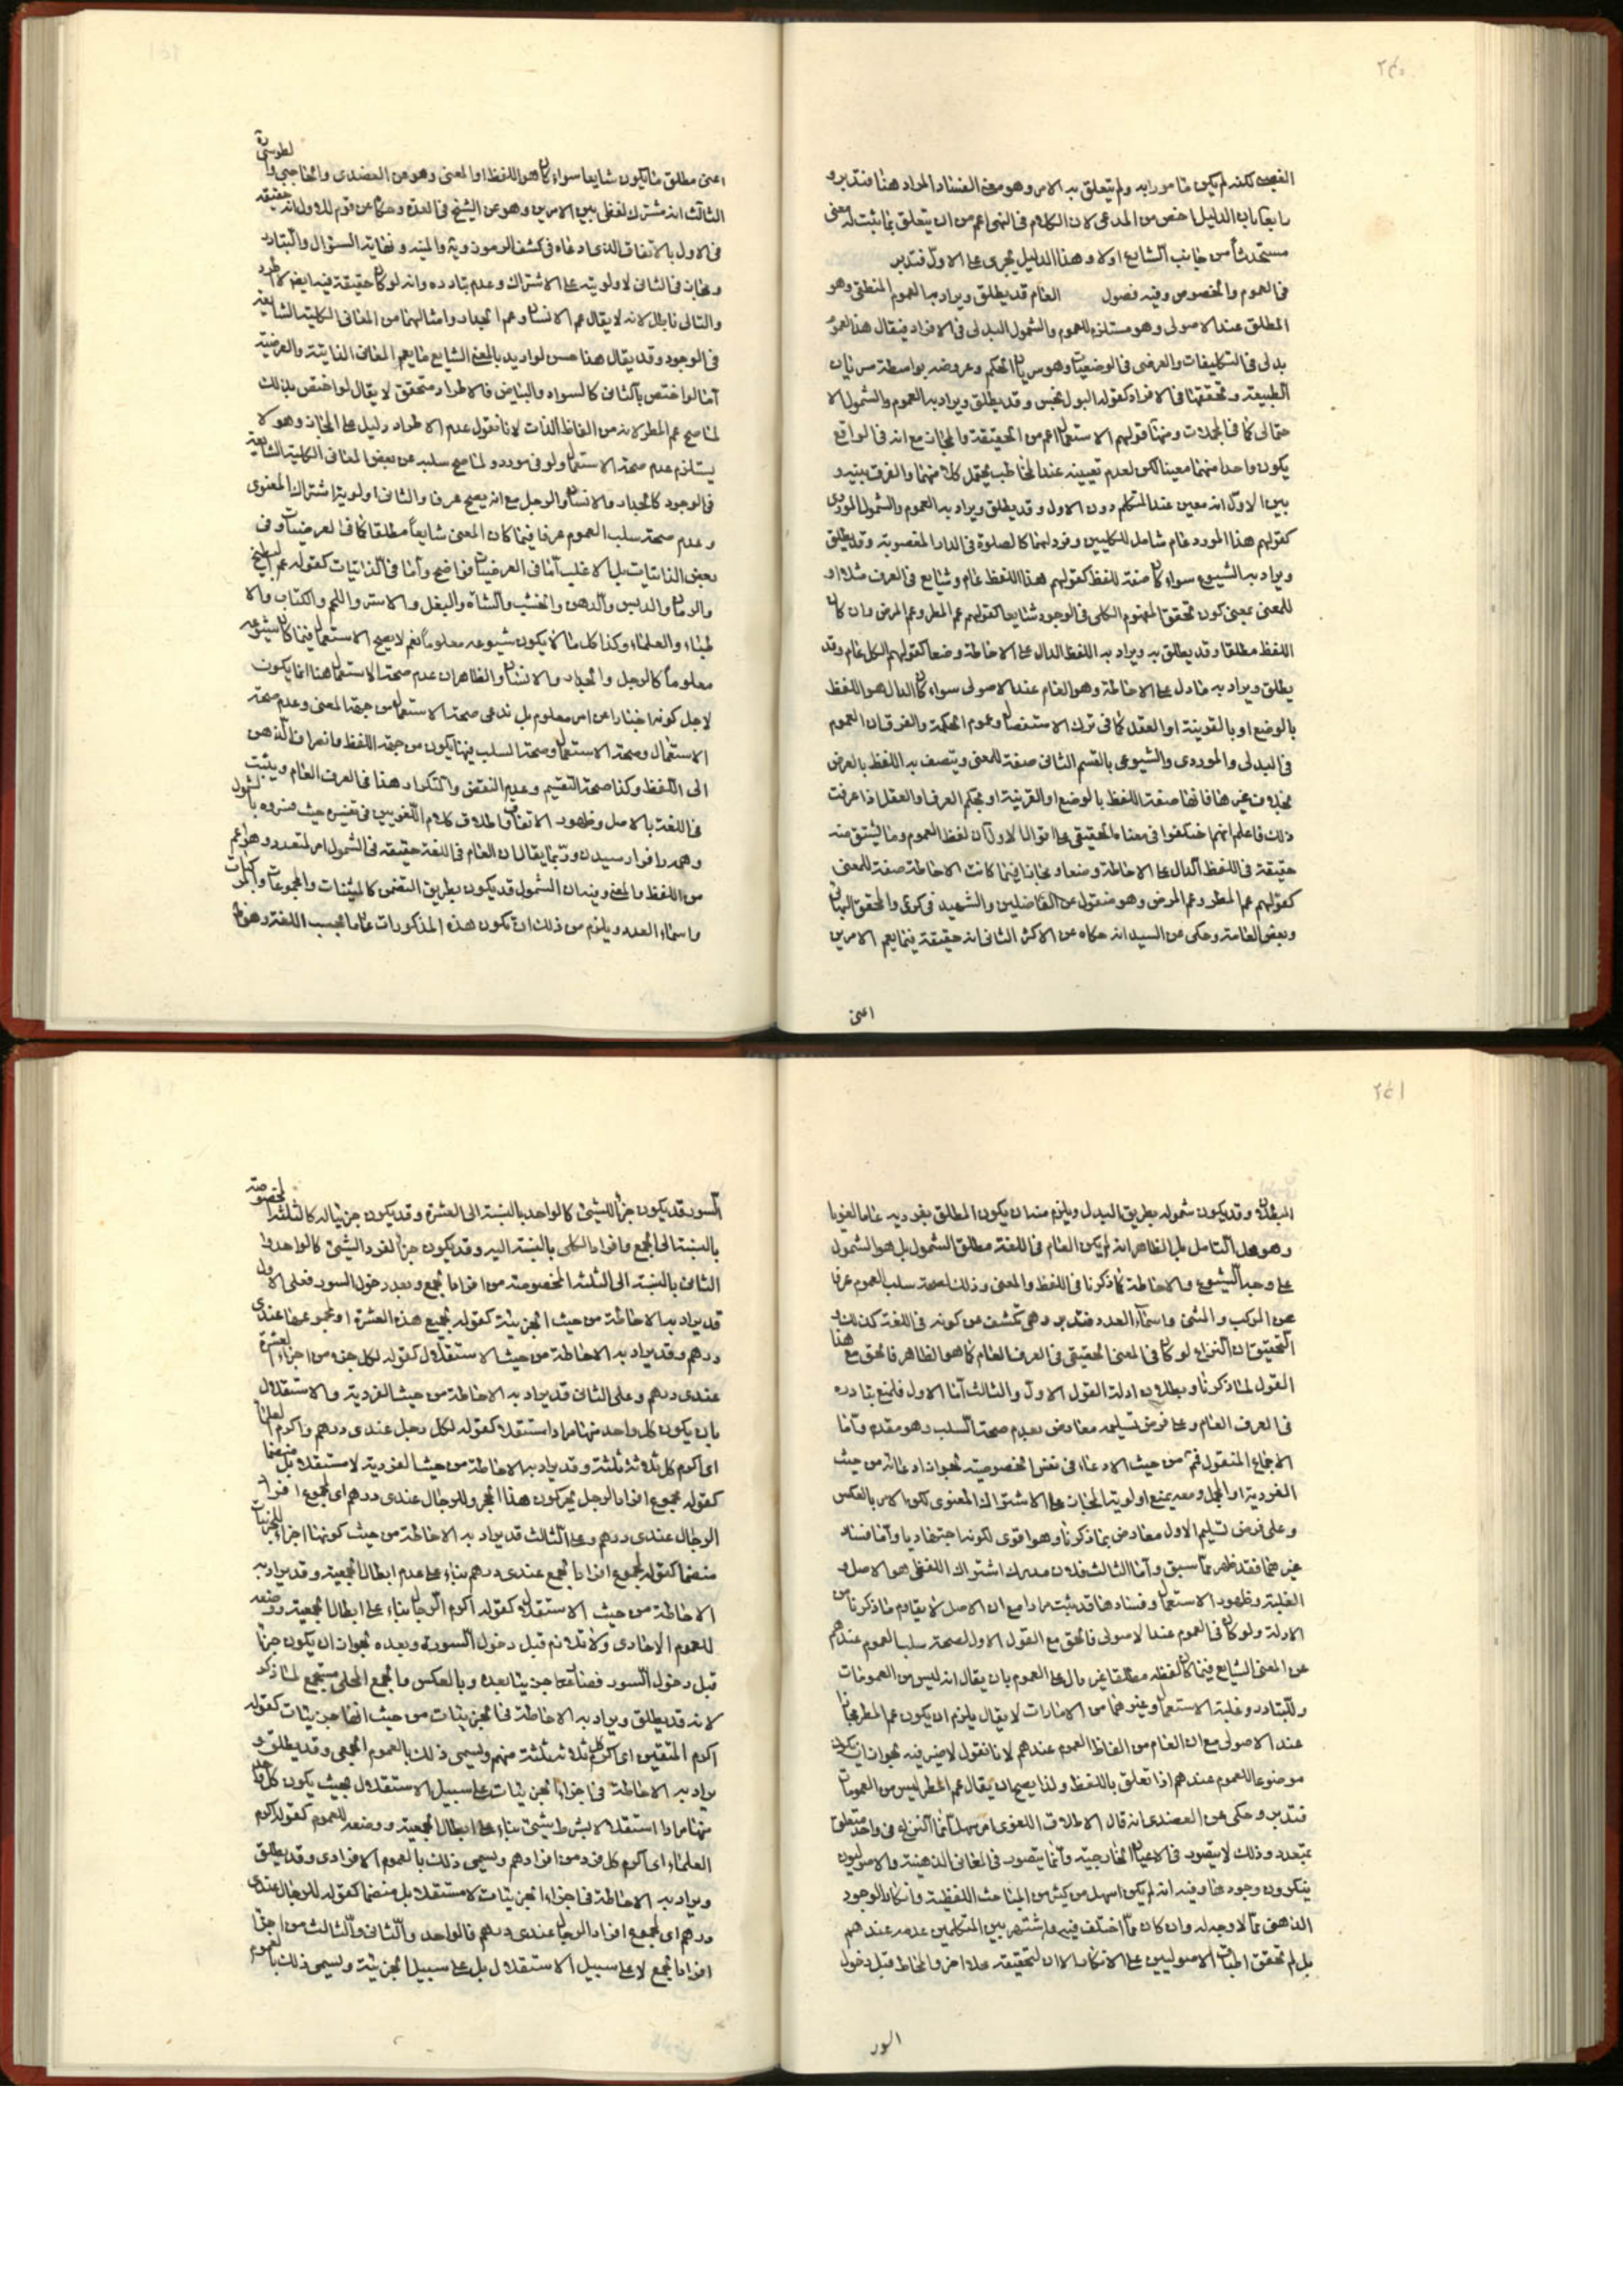 ٢٤٠
القبيح لكنه لم يكن مامورا به ولم يتعلق به الامر وهو معنى الفساد المراد هنا فتدبر و
رابعا بان الدليل اخص من المدعى لان الكلام فى النهى اعم من ان يتعلق بما ثبت له معنى
مستحدثا من جانب الشارع اولا وهذا الدليل يجرى على الاول فتدبر
فى العموم والخصوص وفيه فصول العام قد يطلق ويراد به العموم المنطقى وهو
المطلق عند الاصولى وهو مستلزم للعموم والشمول البدلى فى الافراد فيقال هذا لعموم
بدلى فى التكليفات والعرضى فى الوضعيات وهو سريان الحكم وعروضه بواسطة سريان
الطبيعة وتحققها فى الافراد كقوله البول نجس وقد يطلق ويراد به العموم والشمول الا
حتمالى كما فى المجملات ومنها قولهم الاستعمال اعم من الحقيقة والمجاز مع انه فى الواقع
يكون واحدا منهما معينا لكن لعدم تعيينه عند المخاطب يحتمل كلا منهما والفرق بينه و
بين الاول انه معين عند المتكلم دون الاول وقد يطلق ويراد به العموم والشمول الموردى
كقولهم هذا المورد عام شامل للكليين وفرد لهما كالصلوة فى الدار المغصوبة وقد يطلق
ويراد به الشيوع سواء كان صفة للفظ كقولهم هذا اللفظ عام وشايع فى العرف مثلا او
للمعنى بمعنى كون تحقق المفهوم الكلى فى الوجود شايعا كقولهم عم المطر وعم المرض وان كان
اللفظ مطلقا وقد يطلق به ويراد به اللفظ الدال على الاحاطة وضعا كقولهم الكل عام وقد
يطلق ويراد به مادل على الاحاطة وهو العام عند الاصولى سواء كان الدال هو اللفظ
بالوضع او بالقرينة او العقل كما فى ترك الاستفصال وعموم الحكمة والفرق ان العموم
فى البدلى والموردى والشيوعى بالقسم الثانى صفة للمعنى ويتصف به اللفظ بالعرض
بخلاف غيرها فانها صفة اللفظ بالوضع او القرينة او بحكم العرف او العقل اذا عرفت
ذلك فاعلم انهم اختلفوا فى معناه الحقيقى على اقوال الاول ان لفظ العموم وما يشتق منه
حقيقة فى اللفظ الدال على الاحاطة وضعا ومجازا فيما كانت الاحاطة صفة للمعنى
كقولهم عم المطر وعم المرض وهو منقول عن الفاضلين والشهيد فى كرى والمحقق البهائى
وبعض العامة وحكى عن السيد انه حكاه عن الاكثر الثانى انه حقيقة فيما يعم الامرين
اعنى
لطوسى ره
اعنى مطلق ما يكون شايعا سواء كان هو اللفظ او المعنى وهو من العضدى والحاجبى وا
الثالث انه مشترك لفظى بين الامرين وهو عن الشيخ فى العدة وحكاه عن قوم للاول انه حقيقة
فى الاول بالاتفاق الذى ادعاه فى كشف الرموز وية والمنية وغاية السؤال والتبادر
ومجاز فى الثانى لاولويته على الاشتراك وعدم تبادره وانه لو كان حقيقة فيه ايضا لاطرد
والتالى باطل لانه لا يقال عم الانسان وعم الجدار وامثالهما من المعانى الكلية الشايعة
فى الوجود وقد يقال هذا حسن لو اريد بالمعنى الشايع ما يعم المعانى الذاتية والعرضية
اما لو اختص بالثانى كالسواد والبياض فالاطراد متحقق لا يقال لو اختص بذلك
لما صح عم المطر لانه من الفاظ الذات لانا نقول عدم الاطراد دليل على المجاز وهو لا
يستلزم عدم صحة الاستعمال ولو فى مورد ولما صح سلبه عن بعض المعانى الكلية الشايعة
فى الوجود كالجدار والانسان والرجل مع انه يصح عرفا والثانى اولوية اشتراك المعنوى
وعدم صحة سلب العموم عرفا فيما كان المعنى شايعا مطلقا كما فى العرضيات وفى
بعض الذاتيات بل الاغلب اما فى العرضيات فواضح واما فى الذاتيات كقوله عم البطيخ
والرمان والدبس والدهن والخشب والشاة والبغل والاستر واللحم والكتاب والا
طباء والعلماء وكذا كل ما لا يكون شيوعه معلوما نعم لا يصح الاستعمال فيما كان شيوعه
معلوما كالرجل والجدار والانسان والظاهر ان عدم صحة الاستعمال هنا انما يكون
لاجل كونه اخبارا عن امر معلوم بل ندعى صحة الاستعمال من جهة المعنى وعدم صحة
الاستعمال وصحة الاستعمال وصحة السلب فيها يكون من جهة اللفظ وانصراف الذهن
الى اللفظ وكذا صحة التقسيم وعدم النقض والتكرار هذا فى العرف العام ويثبت
فى اللغة بالاصل وظهور الاتفاق واطلاق كلام اللغويين فى تفسيره حيث فسروه بالشمول
وهمه رافرا رسيدن وربما يقال ان العام فى اللغة حقيقة فى الشمول امر لمتعدد وهو اعم
من اللفظ والمعنى وفيه ان الشمول قد يكون بطريق التضمن كالمثنيات والمجموعات والمركبات
واسماء العدد ويلزم من ذلك ان تكون هذه المذكورات عاما بحسب اللغة وهو
٢٤١
البطلان وقد يكون شموله بطريق البدل ويلزم منه ان يكون المطلق بفرديه عاما لغويا
وهو محل التامل بل الظاهر انه لم يكن العام فى اللغة مطلق الشمول بل هو الشمول
على وجه الشيوع والاحاطة كما ذكرنا فى اللفظ والمعنى وذلك لصحة سلب العموم عرفا
عن المركب والمثنى واسماء العدد فتدبر وهى تكشف عن كونه فى اللغة كذلك و
التحقيق ان النزاع لو كان فى المعنى الحقيقى فى العرف العام كما هو الظاهر فالحق مع هذا
القول لما ذكرنا وبطلان ادلة القول الاول والثالث اما الاول فلمنع تبادره
فى العرف العام وعلى فرض تسليمه معارض بعدم صحة السلب وهو مقدم واما
الاجماع المنقول فيه من حيث الادعاء فى نفس الخصوصية لجواز ادعائه من حيث
الفردية او المحل ومعه يمنع اولوية المجاز على الاشتراك المعنوى لكن الامر بالعكس
وعلى فرض تسليم الاول معارض بما ذكرنا وهو اقوى لكونه اجتهاديا واما فساد
غيرهما فقد ظهر مما سبق واما الثالث فلان مدرك اشتراك اللفظى هو الاصل و
الغلبة وظهور الاستعمال وفسادها قد يثبت مرارا مع ان الاصل لا يقاوم ما ذكرنا من
الادلة ولو كان فى العموم عند الاصولى فالحق مع القول الاول لصحة سلب العموم عندهم
عن المعنى الشايع فيما كان لفظه مطلقا غير دال على العموم بان يقال انه ليس من العمومات
وللتبادر وغلبة الاستعمال وغيرهما من الامارات لا يقال يلزم ان يكون عم المطر مجازا
عند الاصولى مع ان العام من الفاظ العموم عندهم لانا نقول لا ضير فيه لجواز ان يكون
موضوعا للعموم عندهم اذا تعلق باللفظ ولذا يصح ان يقال عم المطر ليس من العمومات
فتدبر وحكى عن العضدى انه قال الاطلاق اللغوى امر سهل انما النزاع فى واحد متعلق
بمتعدد وذلك لا يتصور فى الاعيان الخارجية وانما يتصور فى المعانى الذهنية والاصوليون
ينكرون وجودها وفيه انه لم يكن اسهل من كثير من المباحث اللفظية وانكار الوجود
الذهنى مما لا وجه له وان كان مما اختلف فيه واشتهر بين المتكلمين عدمه عندهم
بل لم تحقق اطباق الاصوليين على الانكار الا ان لتحقيقه محلا اخر والمخاط قبل دخول
السور
السور قد يكون جزءا للشيئ كالواحد بالنسبة الى العشرة وقد يكون جزئيا له كالثلثة المخصوصة
بالنسبة الى الجمع وافراد الكلى بالنسبة اليه وقد يكون جزءا لفرد الشيئ كالواحد وا
الثانى بالنسبة الى الثلثة المخصوصة من افراد الجمع وبعد دخول السور فعلى الاول
قد يراد به الاحاطة من حيث الجزئية كقوله لجميع هذه العشرة او لمجموعها عندى
درهم وقد يراد به الاحاطة من حيث الاستقلال كقوله لكل جزء من اجزاء العشرة
عندى درهم وعلى الثانى قد يراد به الاحاطة من حيث الفردية والاستقلال
بان يكون كل واحد منها مرادا مستقلا كقوله لكل رجل عندى درهم واكرم العلماء
اى اكرم كل ثلاثة ثلثة وقد يراد به الاحاطة من حيث الفردية لا مستقلا بل منضما
كقوله مجموع افراد الرجل يحركون هذا الحجر وللرجال عندى درهم اى لمجموع افراد
الرجال عندى درهم وعلى الثالث قد يراد به الاحاطة من حيث كونها اجزاء للجزئيات
منضما كقوله لمجموع افراد الجمع عندى درهم بناء على عدم ابطال الجمعية وقد يراد به
الاحاطة من حيث الاستقلال كقوله اكرم الرجال بناء على ابطال الجمعية ووضعه
للعموم الافرادى ولا تلازم قبل دخول السور وبعده لجواز ان يكون جزءا
قبل دخول السور فصار جزئيا بعده وبالعكس والجمع المحلى مستجمع لما ذكر
لانه قد يطلق ويراد به الاحاطة فى الجزئيات من حيث انها جزئيات كقوله
اكرم المتقين اى اكرم كل ثلاثة ثلثة منهم ويسمى ذلك بالعموم الجمعى وقد يطلق و
يراد به الاحاطة فى اجزاء الجزئيات على سبيل الاستقلال بحيث يكون كل واحد
منها مرادا استقلالا بشرط شيئ بناء على ابطال الجمعية ووضعه للعموم كقوله اكرم
العلماء اى اكرم كل فرد من افرادهم ويسمى ذلك بالعموم الافرادى وقد يطلق
ويراد به الاحاطة فى اجزاء الجزئيات لا مستقلا بل منضما كقوله للرجال عندى
درهم اى لمجموع افراد الرجال عندى درهم فالواحد والثانى والثالث من اجزاء
افراد الجمع لا على سبيل الاستقلال بل على سبيل الجزئية ويسمى ذلك بالعموم